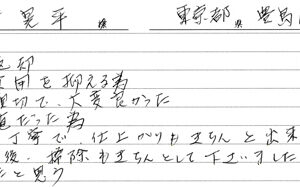 晃平 様 東京都 豊島
を抑える為
切で、大変良かった
だった為
丁寧で、仕上がりもきちんと出来
後、掃除もきちんとして下さいました
と思う